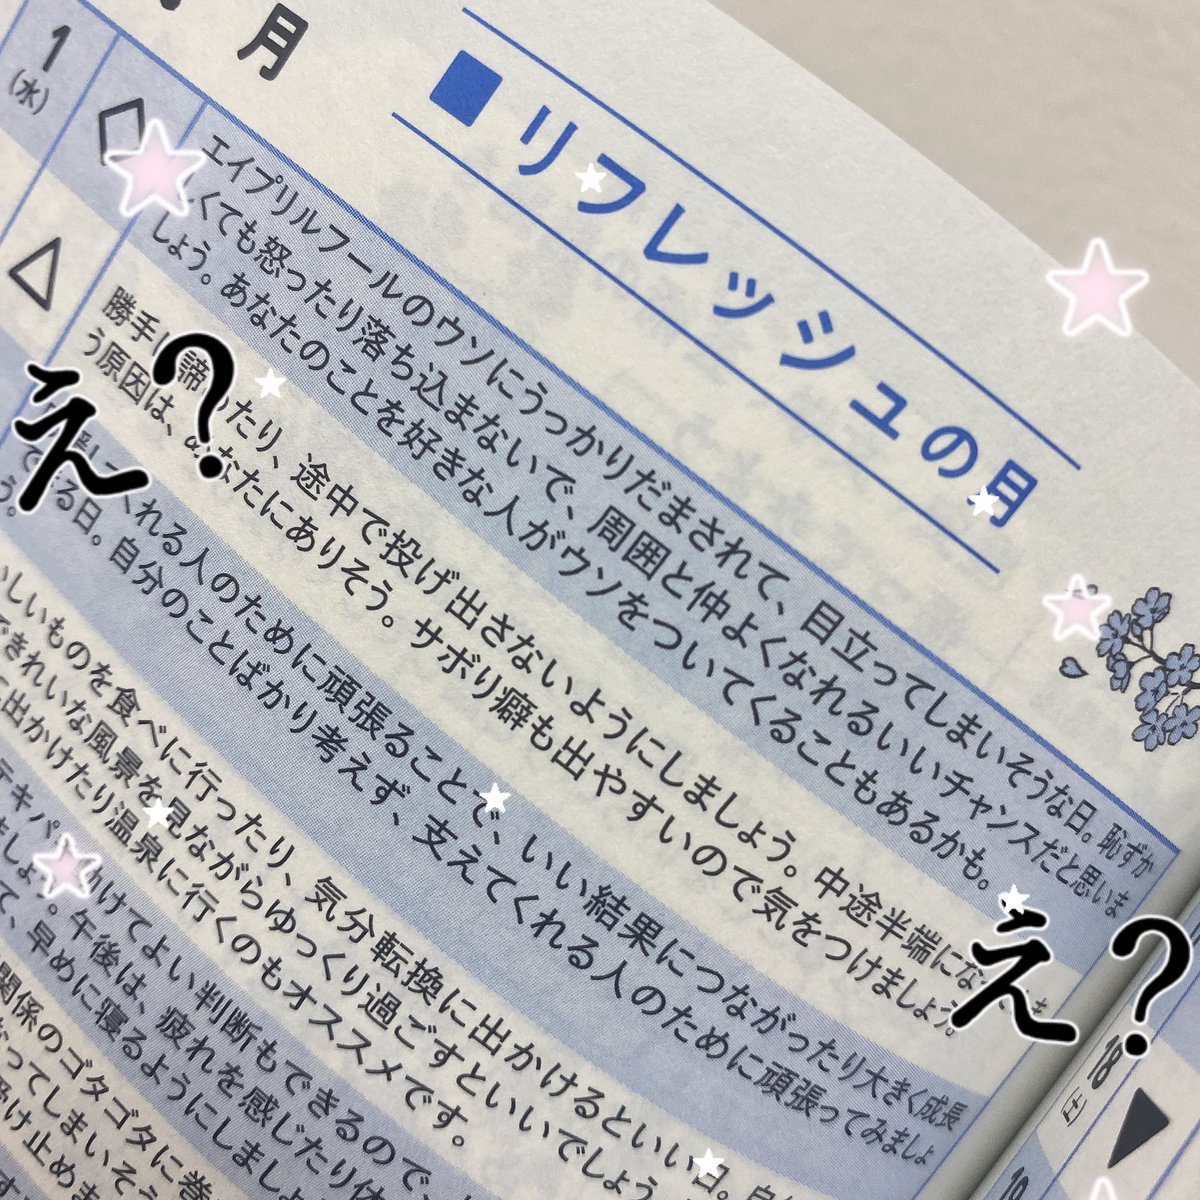 月
■リフレッシュの月
1
(水)
エイプリルフールのウソにうっかりだまされて、目立ってしまいそうな日。恥ずか
しくても怒ったり落ち込まないで、周囲と仲よくなれるいいチャンスだと思いま
しょう。あなたのことを好きな人がウソをついてくることもあるかも。
勝手に諦めたり、途中で投げ出さないようにしましょう。中途半端になってしま
う原因は、あなたにありそう。サボり癖も出やすいので気をつけましょう。
くれる人のために頑張ることで、いい結果につながったり大きく成長
できる日。自分のことばかり考えず、支えてくれる人のために頑張ってみましょ
う。
いしいものを食べに行ったり、気分転換に出かけるといい日。
できれいな風景を見ながらゆっくり過ごすといいでしょう
に出かけたり温泉に行くのもオススメです。
テキパ
けてよい判断もできるので、
ましょう。午後は、疲れを感じたり体
て、早めに寝るようにしましょ
関係のゴタゴタに巻
なってしまいそう
受け止めま
え?
え?
18